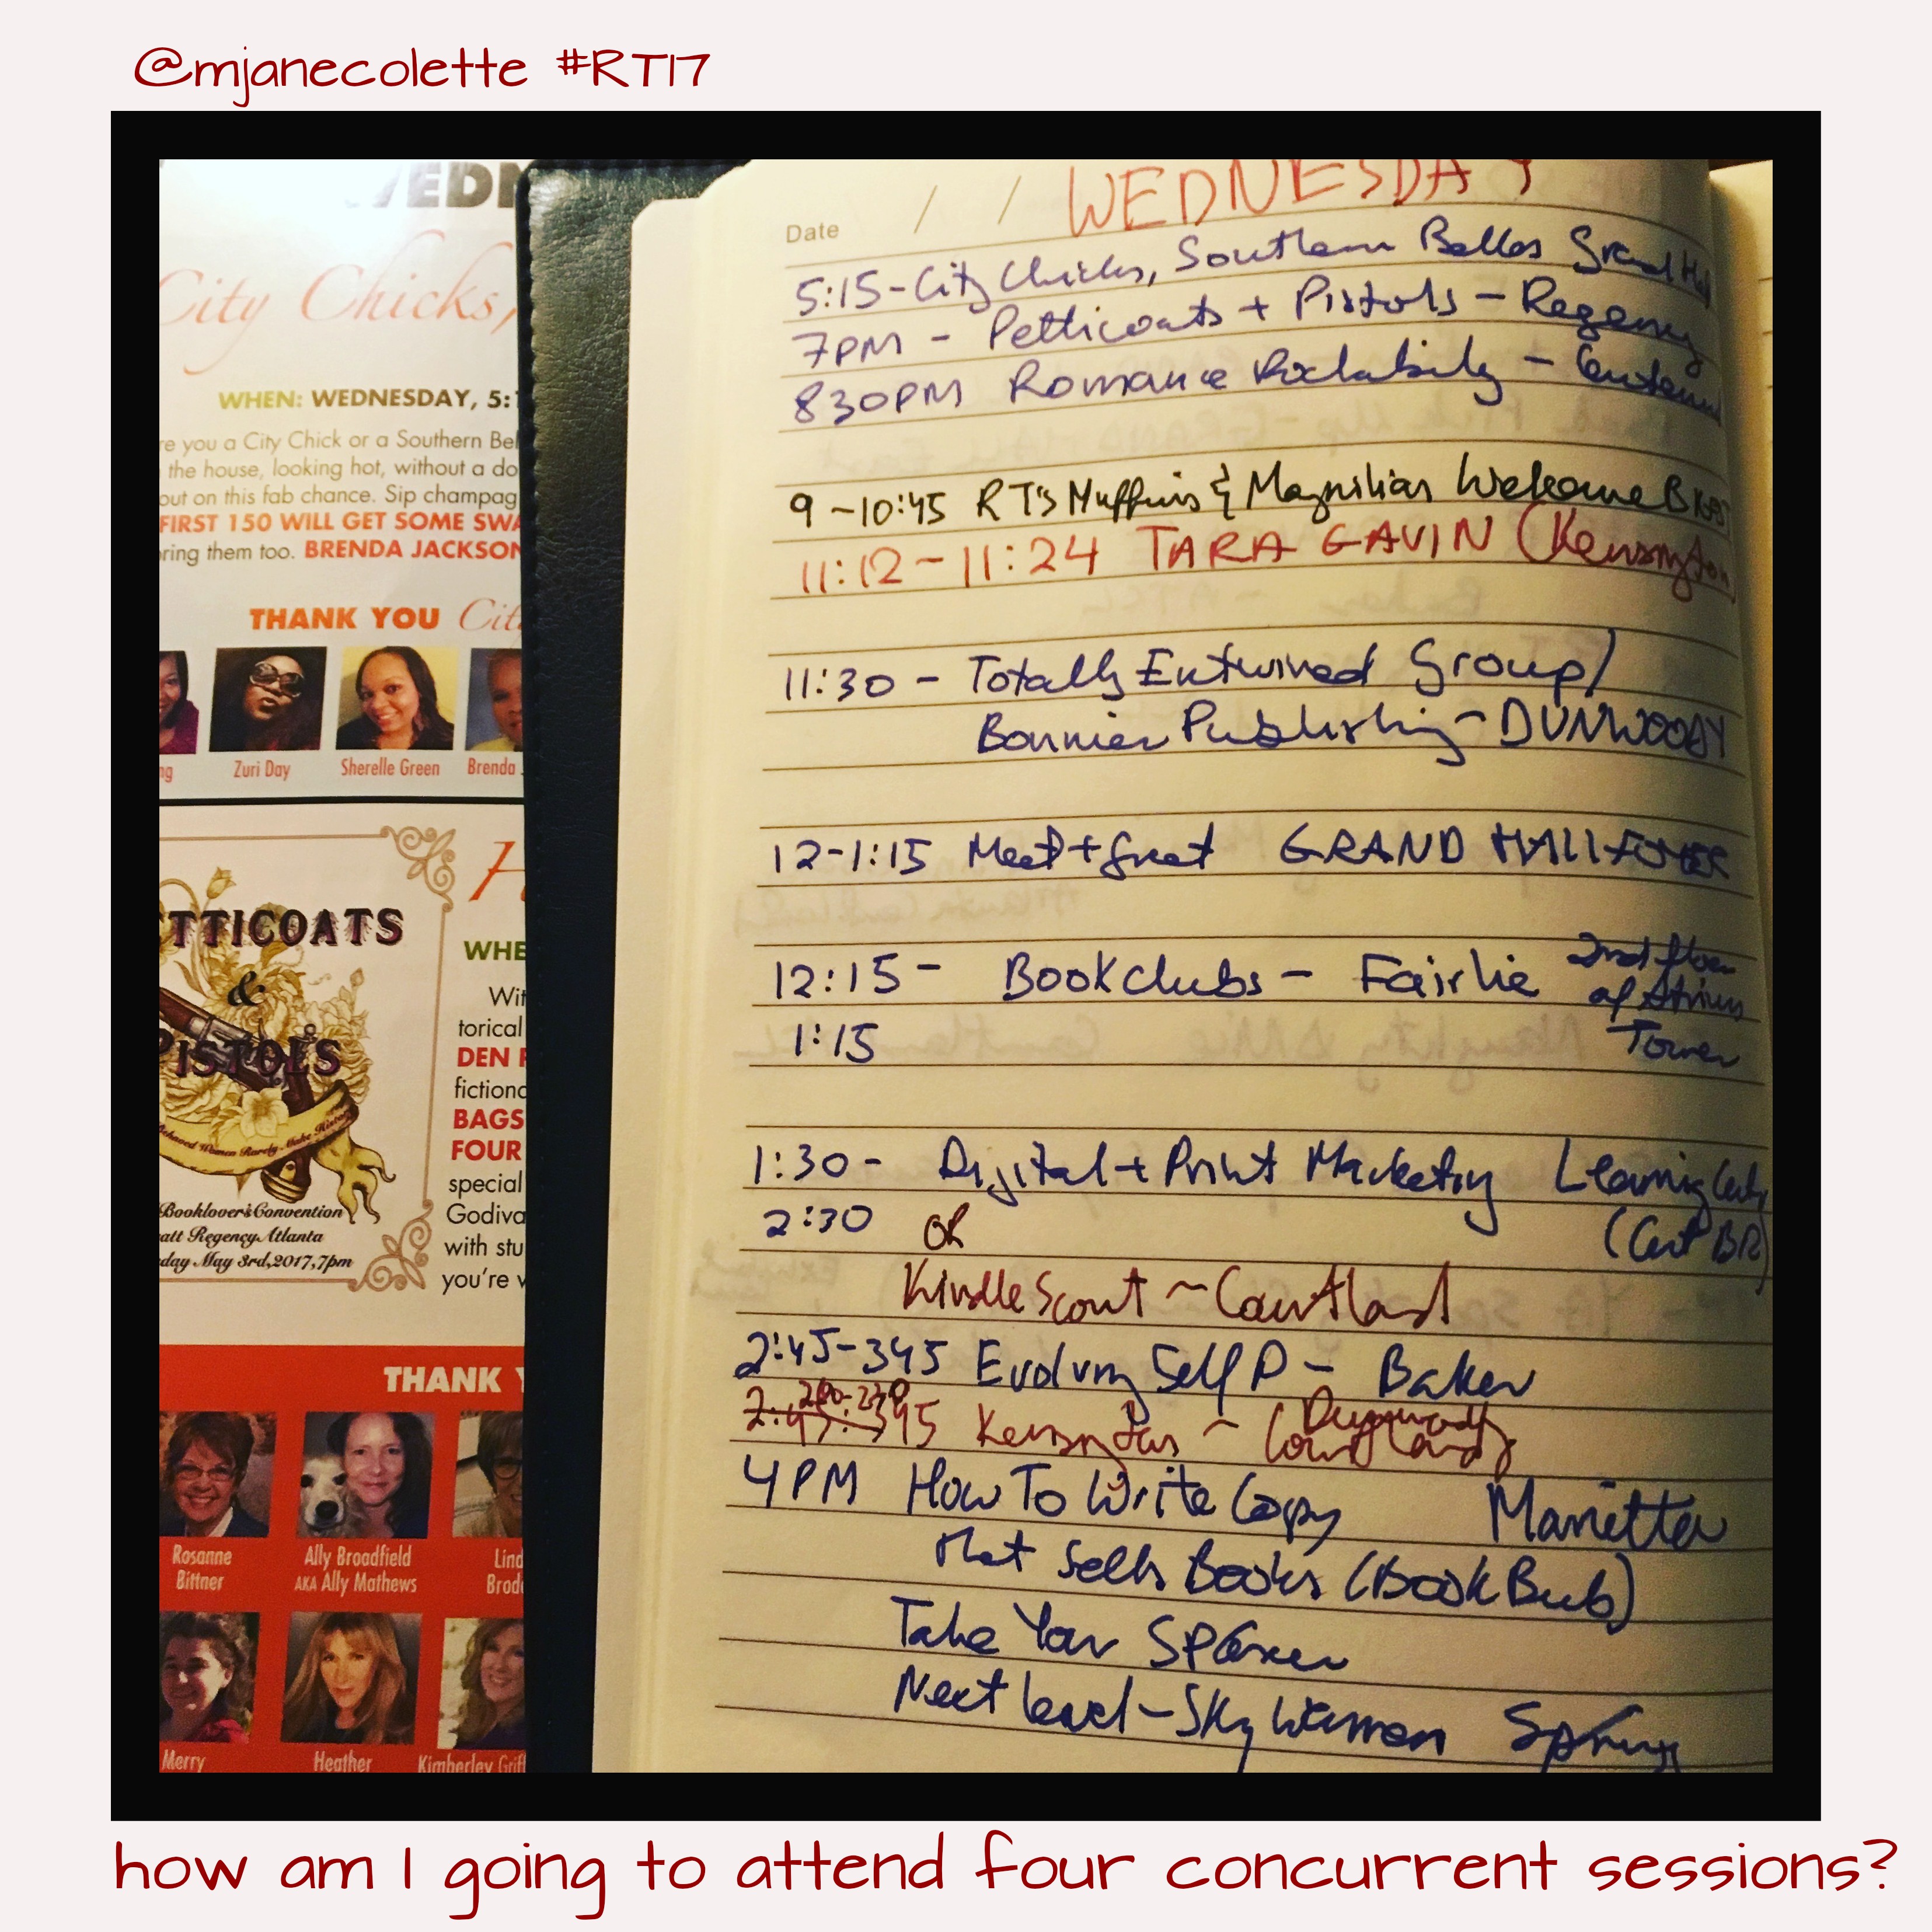 @mjanecolette #RT17
WEDN
City Chicks,
WHEN: WEDNESDAY, 5:1
re you a City Chick or a Southern Bel
the house, looking hot, without a do
out on this fab chance. Sip champag
FIRST 150 WILL GET SOME SWA
ring them too. BRENDA JACKSON
THANK YOU Cit
ng
Zuri Day
Sherelle Green
Brenda
TTICOATS
&
PISTOLS
ehaved Women Rarely Make History
Booklover's Convention
att Regency Atlanta
day May 3rd, 2017, 7pm
H
WHE
Wit
torical
DEN
fictiona
BAGS
FOUR
special
Godiva
with stu
you're
THANK
Rosanne
Bittner
Ally Broadfield
AKA Ally Mathews
Lind
Brod
Merry
Heather
Kimberley Griff
Date / / WEDNESDAY
5:15-City Chicks, Southern Belles Grand Hal
7PM - Petticoats + Pistols - Regency
830PM Romance Rockabily - Centenn
9-10:45 RT's Muffins & Magnilias Welcome
11:12-11:24 TARA GAVIN (Kensington)
11:30 - Totally Entwined Group/
Bonnier Publishing - DUNWOODY
12-1:15 Meet + Greet GRAND HALL FOYER
12:15 - Bookclubs - Fairlie 2nd floor
of Atrium
1:15 Tower
1:30 - Digital + Print Marketing Learning
2:30 OR (Cent BR)
Kindle Scout ~ Courtland
2:45-345 Evolving Self P - Baker
2:45-345 Kensington ~ Courtland Dunwoody
4PM How To Write Copy Marietta
that Sells Books (BookBub)
Take Your
Next level - Sky Women Spring
how am I going to attend four concurrent sessions?